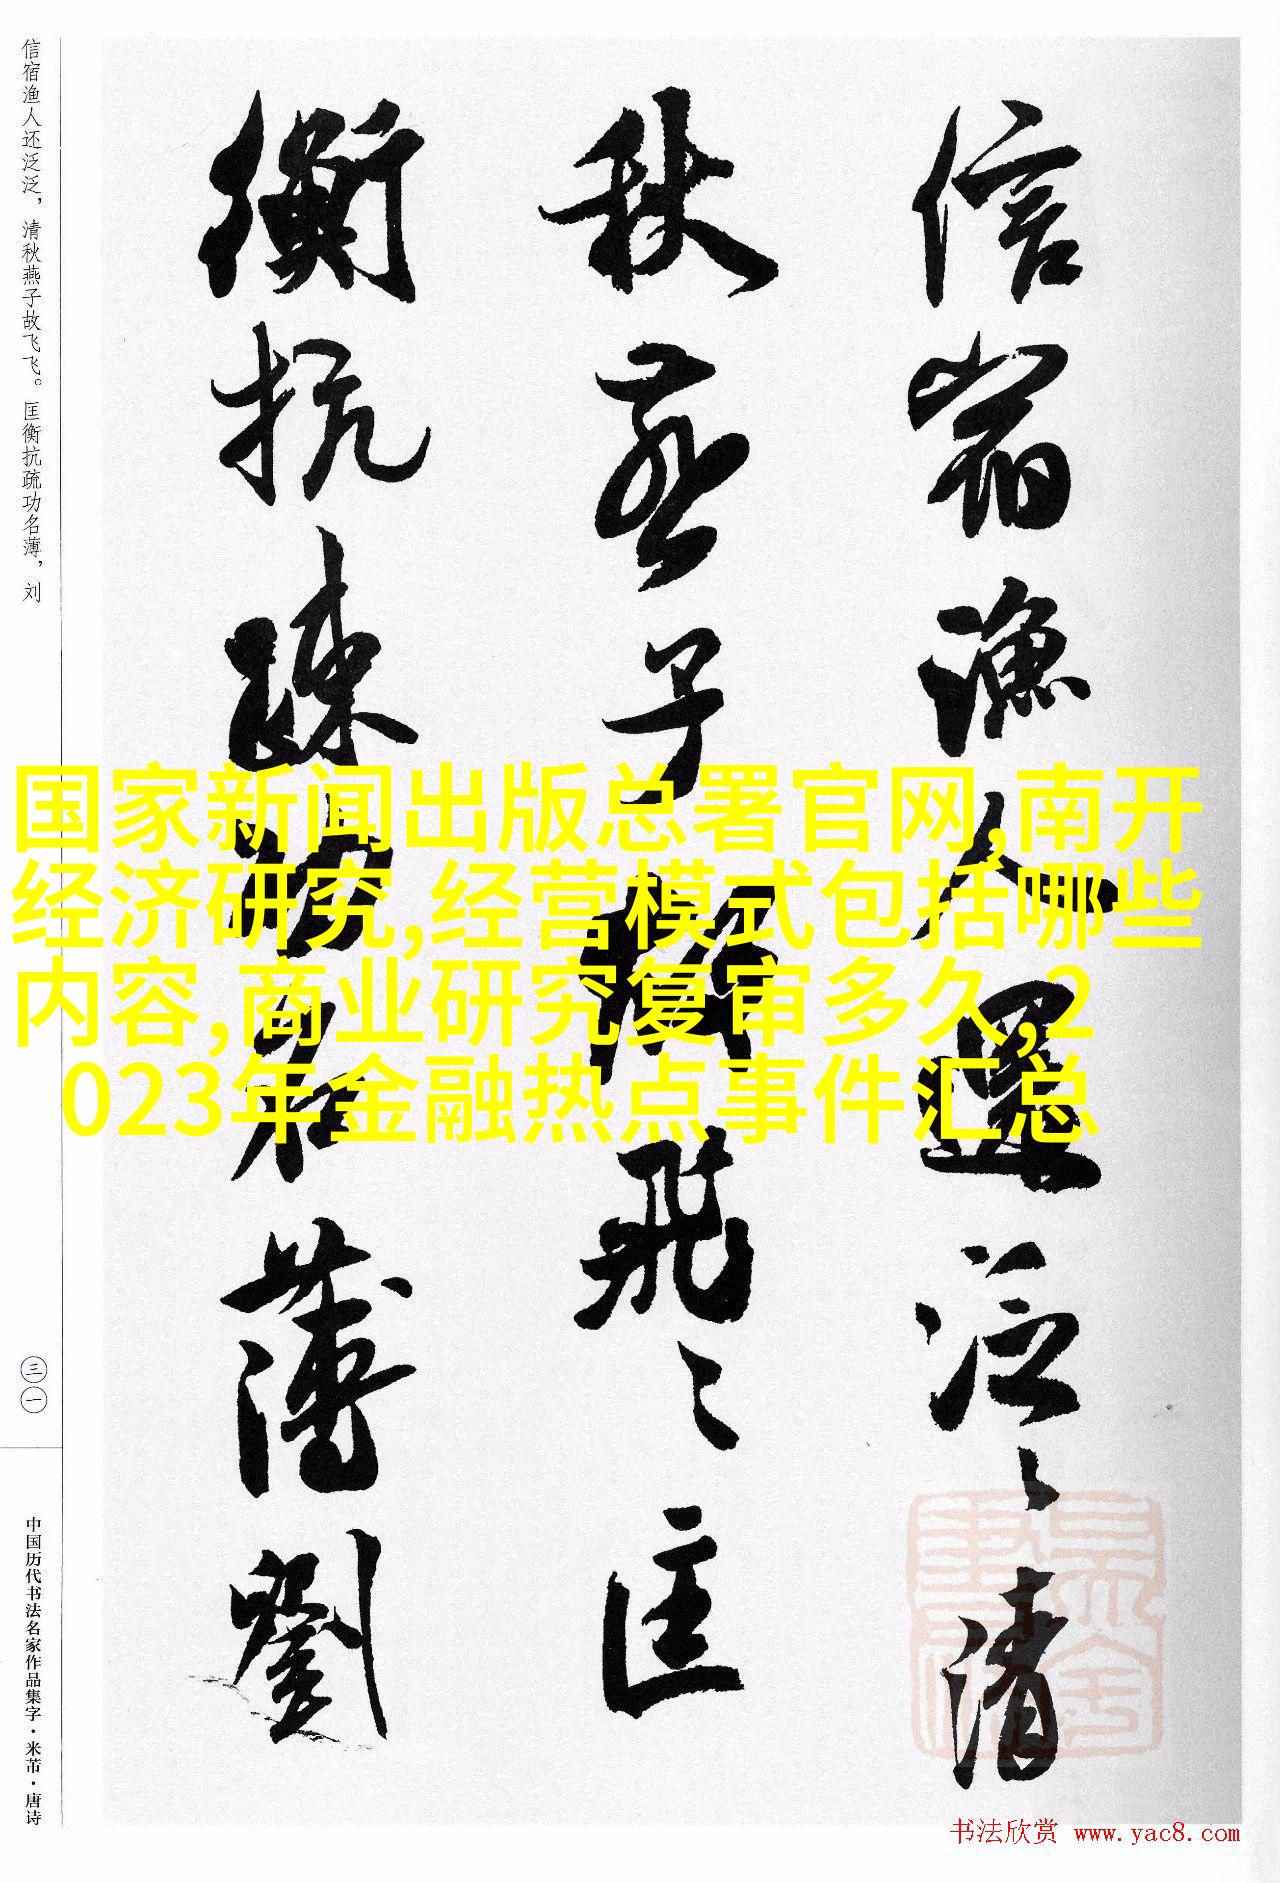 信宿渔人还泛泛，清秋燕子故飞飞。匡衡抗疏功名薄，刘
信宿漁人還泛〻清
秋燕子故飛〻匡
衡抗疏功名薄劉
国家新闻出版总署官网,南开
经济研究,经营模式包括哪些
内容,商业研究复审多久,2
023年金融热点事件汇总
三一
中国历代书法名家作品集字·米芾·唐诗
书法欣赏 www.yac8.com